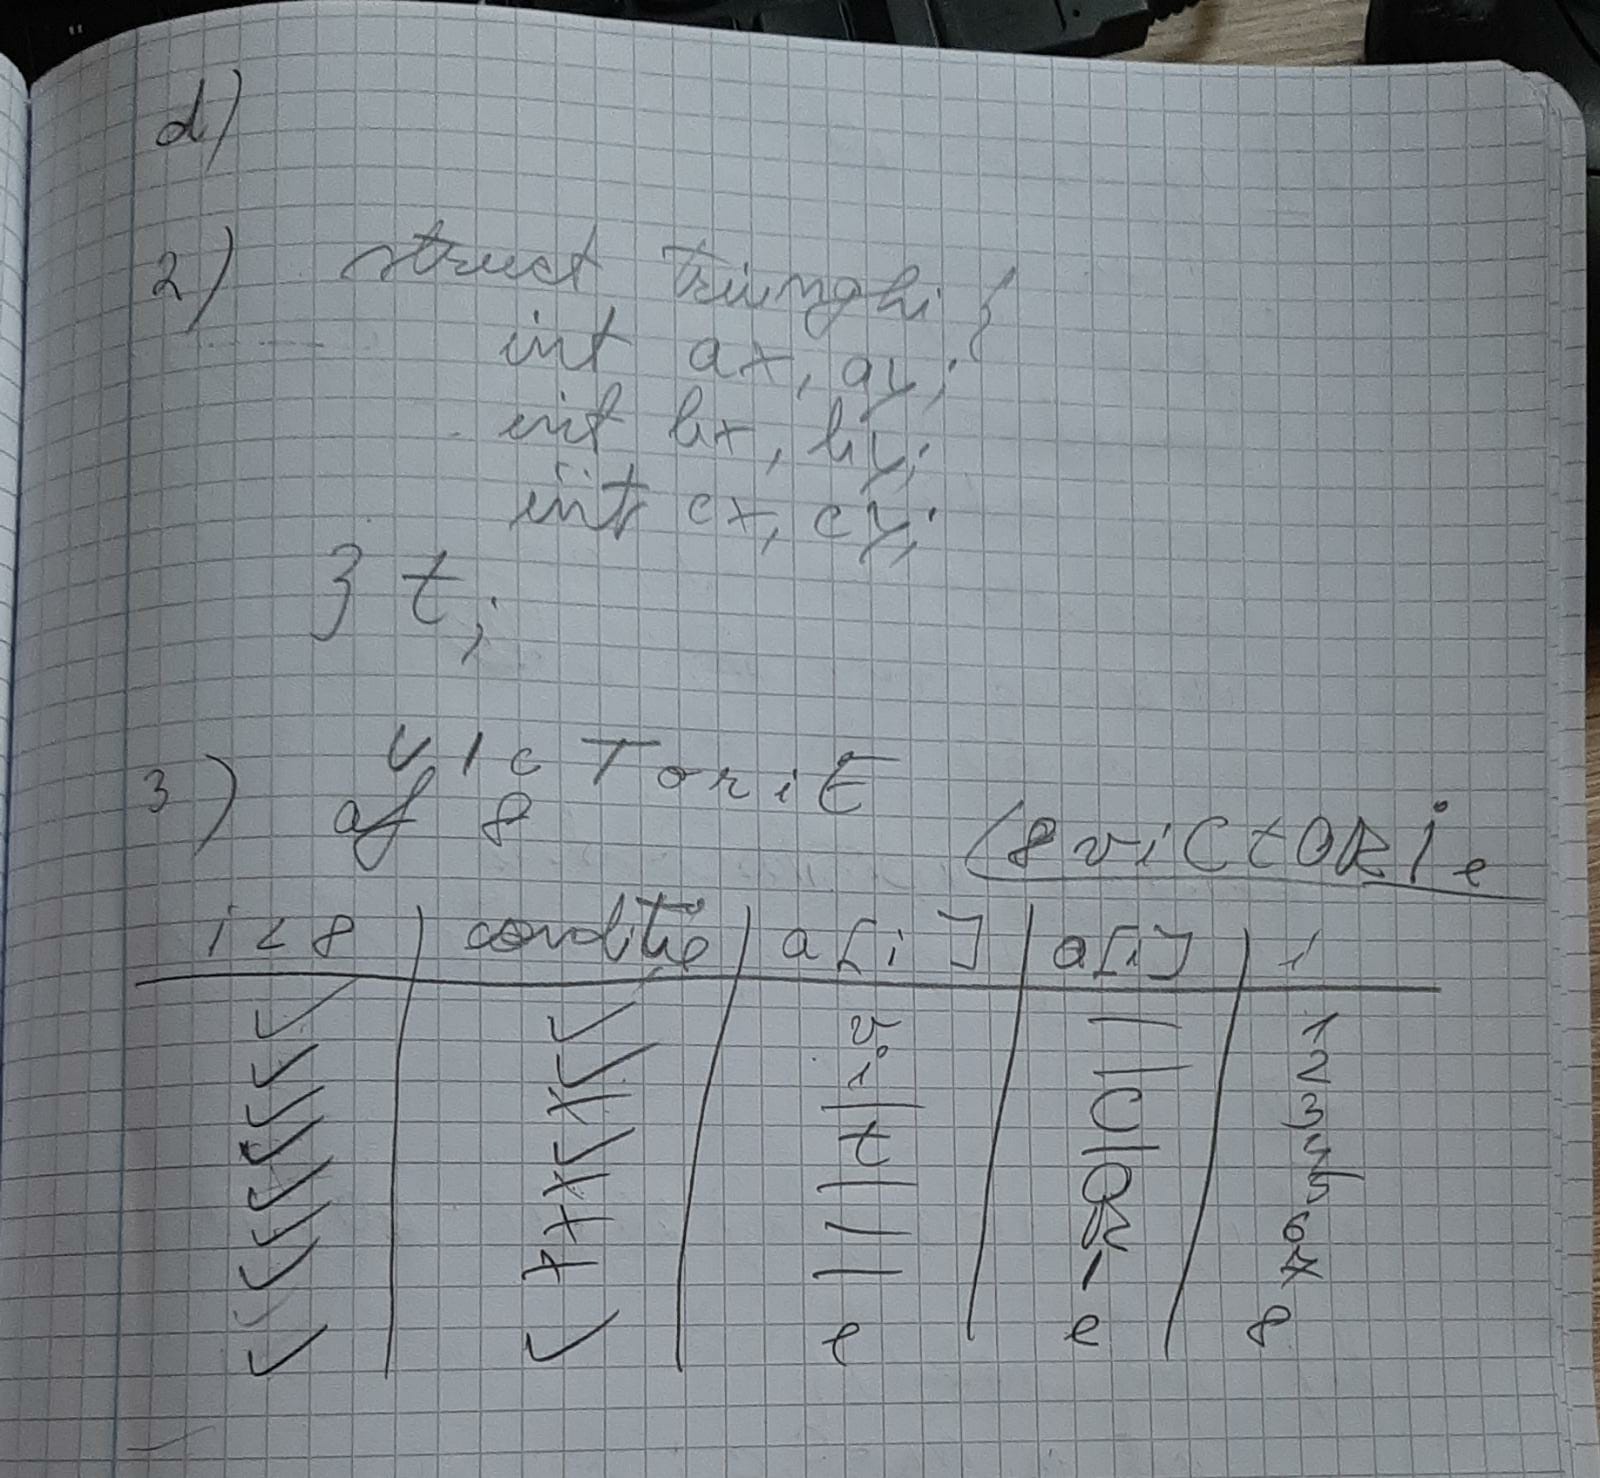 d)
2) struct triunghi {
int ax, ay;
int bx, by;
int cx, cy;
} t;
3) VIcToriE
af 8
(8viCtORIe
i<8 | conditie | a[i] | a[i] | i
✓ | ✓ | v | — | 1
✓ | ✓ | i | — | 2
✓ | x | — | C | 3
✓ | ✓ | t | — | 4
✓ | x | — | O | 5
✓ | x | — | R | 6
✓ | x | — | I | 7
✓ | ✓ | e | e | 8